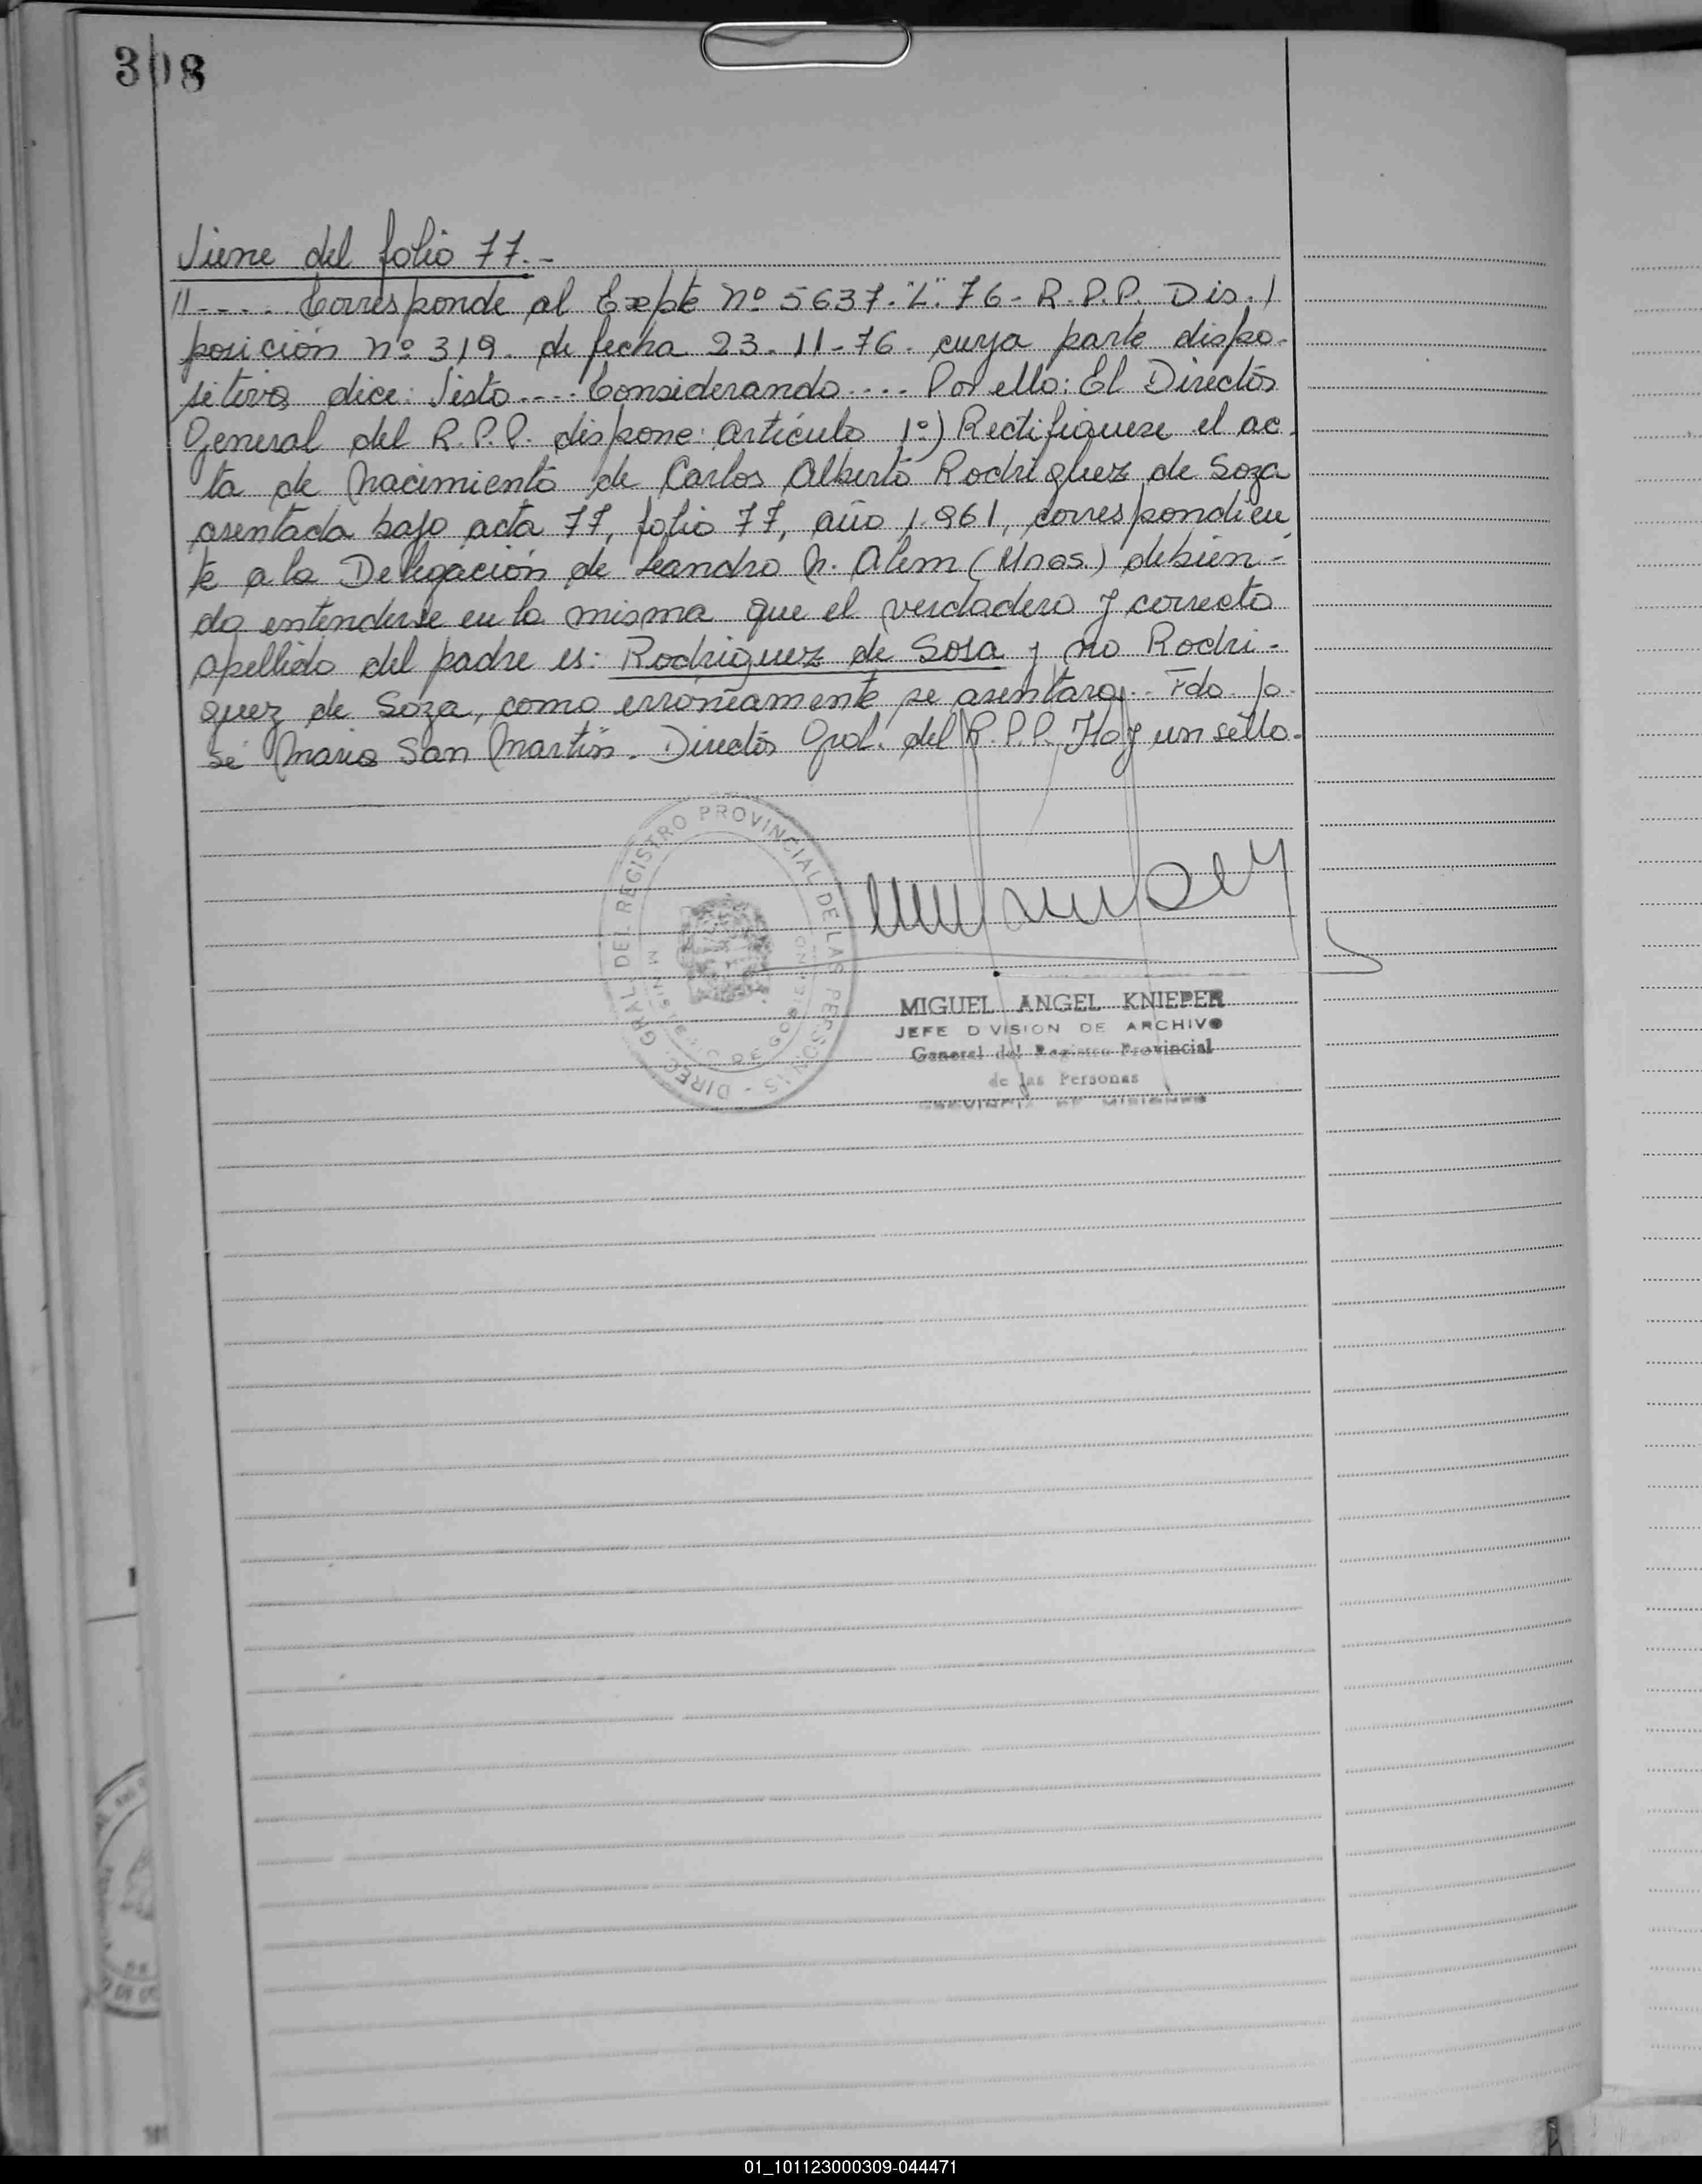 308
Viene del folio 77.-
11-.... Corresponde al Expte nº 5637."L".76- R.P.P. Dis./
posición nº 319. de fecha 23-11-76. cuya parte dispo-
sitiva dice: Visto.... Considerando.... Por ello: El Director
General del R.P.P. dispone: Artículo 1º) Rectifiquese el ac-
ta de Nacimiento de Carlos Alberto Rodriguez de Soza
asentada bajo acta 77, folio 77, año 1.961, correspondien
te a la Delegación de Leandro N. Alem (Mnes.) debien-
do entenderse en la misma que el verdadero y correcto
apellido del padre es: Rodriguez de Sosa y no Rodri-
guez de Soza, como erróneamente se asentara.- Fdo. Jo-
sé Mario San Martín. Director Gral. del R.P.P. Hay un sello.
DIREC. GRAL. DEL REGISTRO PROVINCIAL DE LAS PERSONAS -
MINISTERIO DE GOBIERNO
MIGUEL ANGEL KNIEPER
JEFE DIVISION DE ARCHIVO
General del Registro Provincial
de las Personas
PROVINCIA DE MISIONES
01_101123000309-044471